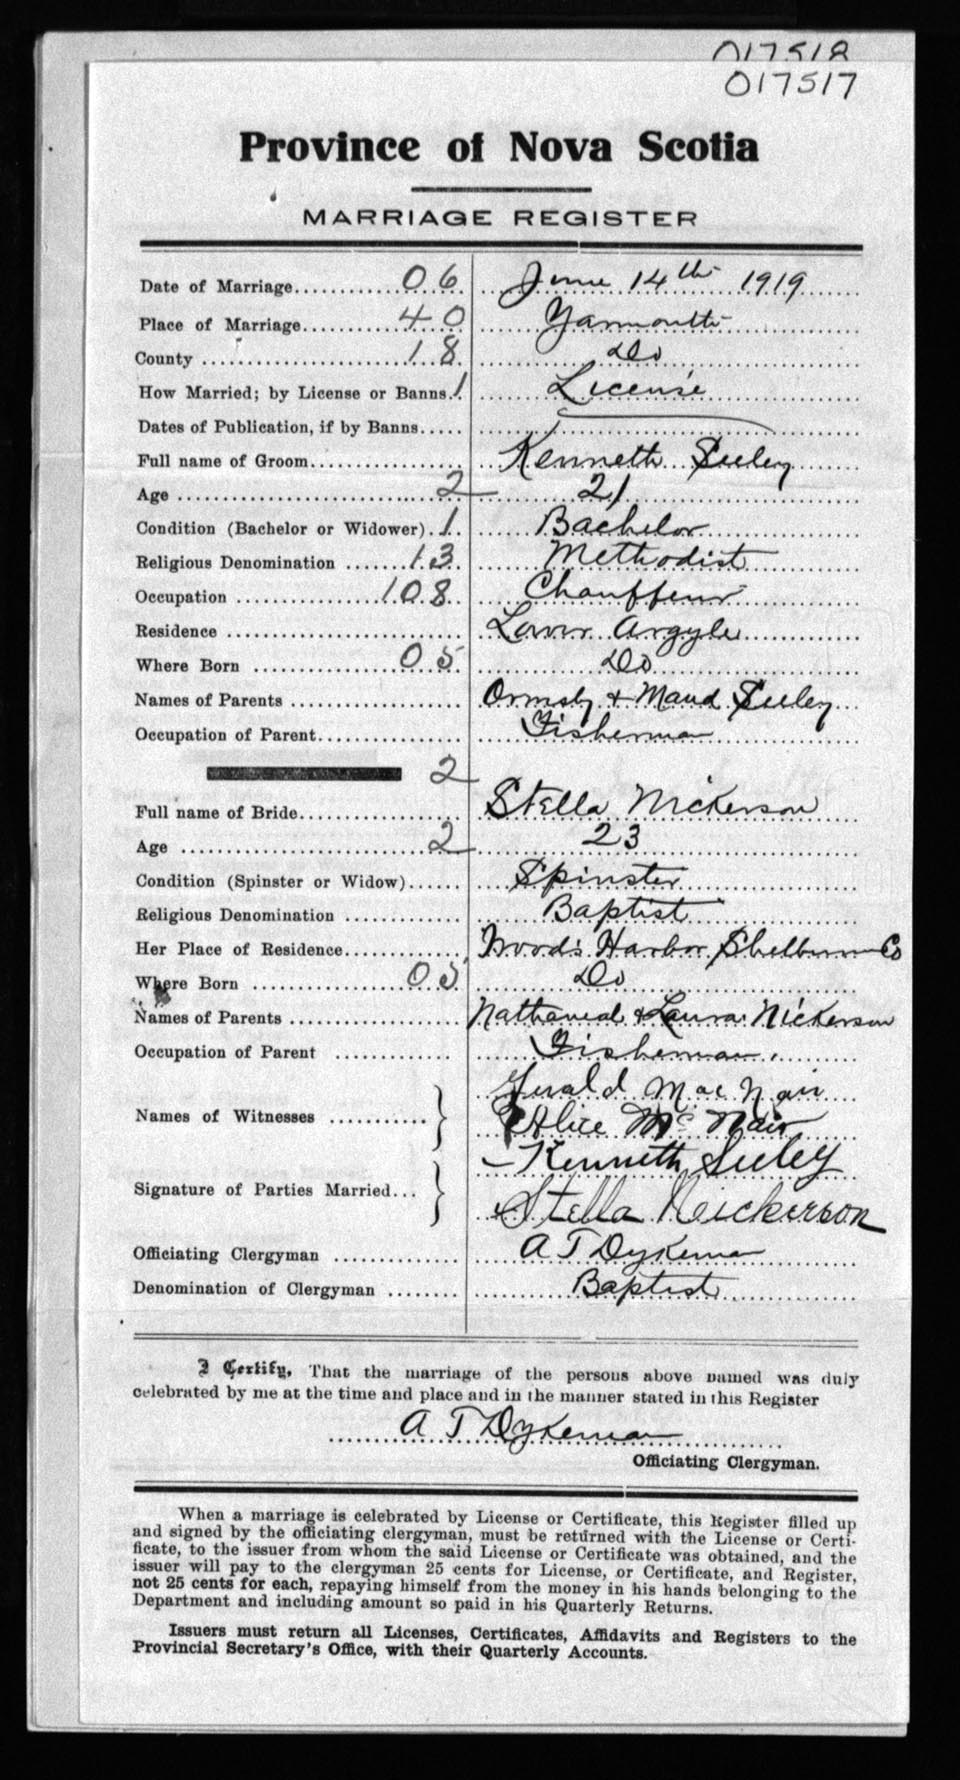 017518
017517
Province of Nova Scotia
MARRIAGE REGISTER
Date of Marriage 06 June 14th 1919
Place of Marriage 40 Yarmouth
County 18 Do
How Married; by License or Banns 1 License
Dates of Publication, if by Banns
Full name of Groom Kenneth Seeley
Age 2 21
Condition (Bachelor or Widower) 1 Bachelor
Religious Denomination 13 Methodist
Occupation 108 Chauffeur
Residence Lower Argyle
Where Born 05 Do
Names of Parents Ormsby & Maud Seeley
Occupation of Parent Fisherman
2
Full name of Bride Stella Nickerson
Age 2 23
Condition (Spinster or Widow) Spinster
Religious Denomination Baptist
Her Place of Residence Wood's Harbor Shelburne Co
Where Born 05 Do
Names of Parents Nathaniel & Laura Nickerson
Occupation of Parent Fisherman
Names of Witnesses Gerald MacNair
Alice McNair
Signature of Parties Married Kenneth Seeley
Stella Nickerson
Officiating Clergyman A T Dykeman
Denomination of Clergyman Baptist
I Certify, That the marriage of the persons above named was duly
celebrated by me at the time and place and in the manner stated in this Register
A T Dykeman
Officiating Clergyman.
When a marriage is celebrated by License or Certificate, this Register filled up
and signed by the officiating clergyman, must be returned with the License or Certi-
ficate, to the issuer from whom the said License or Certificate was obtained, and the
issuer will pay to the clergyman 25 cents for License, or Certificate, and Register,
not 25 cents for each, repaying himself from the money in his hands belonging to the
Department and including amount so paid in his Quarterly Returns.
Issuers must return all Licenses, Certificates, Affidavits and Registers to the
Provincial Secretary's Office, with their Quarterly Accounts.